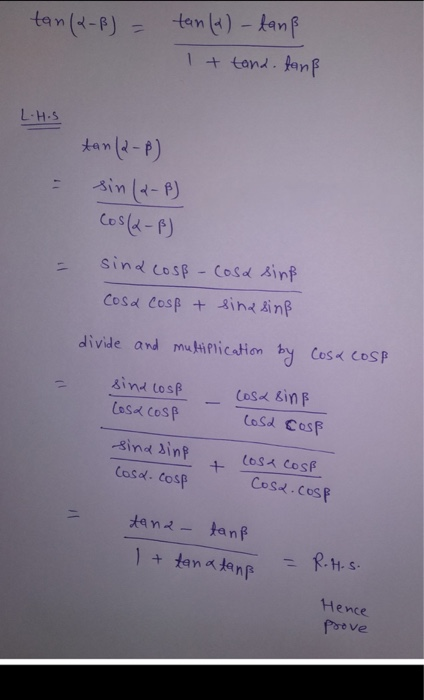 tan(α-β) = tan(α) - tanβ / 1 + tanα. tanβ
L.H.S
tan(α-β)
= sin(α-β) / cos(α-β)
= sinα cosβ - cosα sinβ / cosα cosβ + sinα sinβ
divide and multiplication by cosα cosβ
= sinα cosβ / cosα cosβ - cosα sinβ / cosα cosβ
sinα sinβ / cosα. cosβ + cosα cosβ / cosα. cosβ
= tanα - tanβ / 1 + tanα tanβ = R.H.S.
Hence
prove